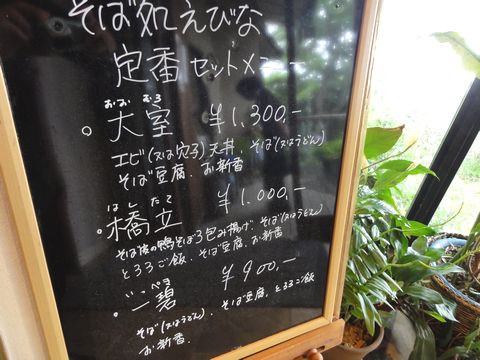 そば処えびな
定番セットメニュー
おお むろ
○大室 ¥1,300,-
エビ(又は穴子)天丼、そば(又はうどん)
そば豆腐、お新香
はし だて
○橋立 ¥1,000,-
そば皮の鴨そぼろ包み揚げ、そば(又はうどん)
とろろご飯、そば豆腐、お新香
いっ ぺき
○一碧 ¥900,-
そば(又はうどん)、そば豆腐、とろろご飯
お新香